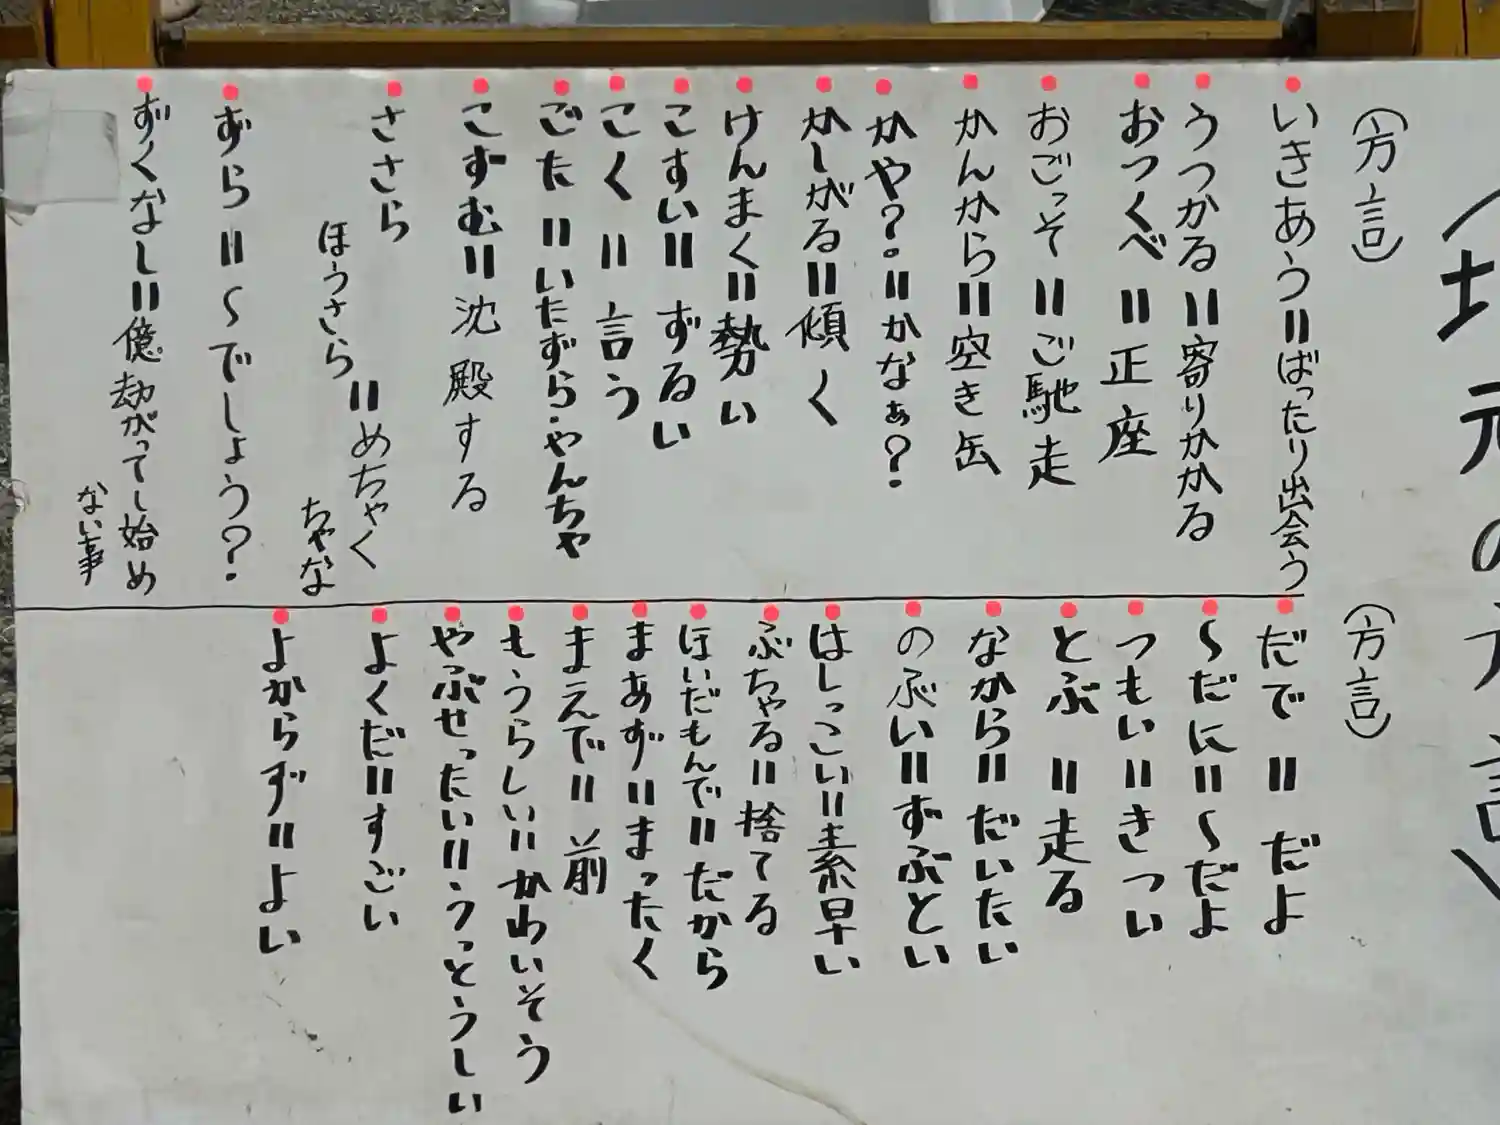 （地元の方言）
（方言）
いきあう＝ばったり出会う
うつかる＝寄りかかる
おっくべ＝正座
おごっそ＝ご馳走
かんから＝空き缶
かや？。＝かなぁ？
かしがる＝傾く
けんまく＝勢い
こすい＝ずるい
こく＝言う
ごた＝いたずら・やんちゃ
こずむ＝沈殿する
ささら
ほうさら＝めちゃく
ちゃな
ずら＝〜でしょう？
ずくなし＝億劫がってし始め
ない事
（方言）
だで＝だよ
〜だに＝〜だよ
つもい＝きつい
とぶ＝走る
なから＝だいたい
のぶい＝ずぶとい
はしっこい＝素早い
ぶちゃる＝捨てる
ほいだもんで＝だから
まあず＝まったく
まえで＝前
もうらしい＝かわいそう
やぶせったい＝うっとうしい
よくだ＝すごい
よからず＝よい